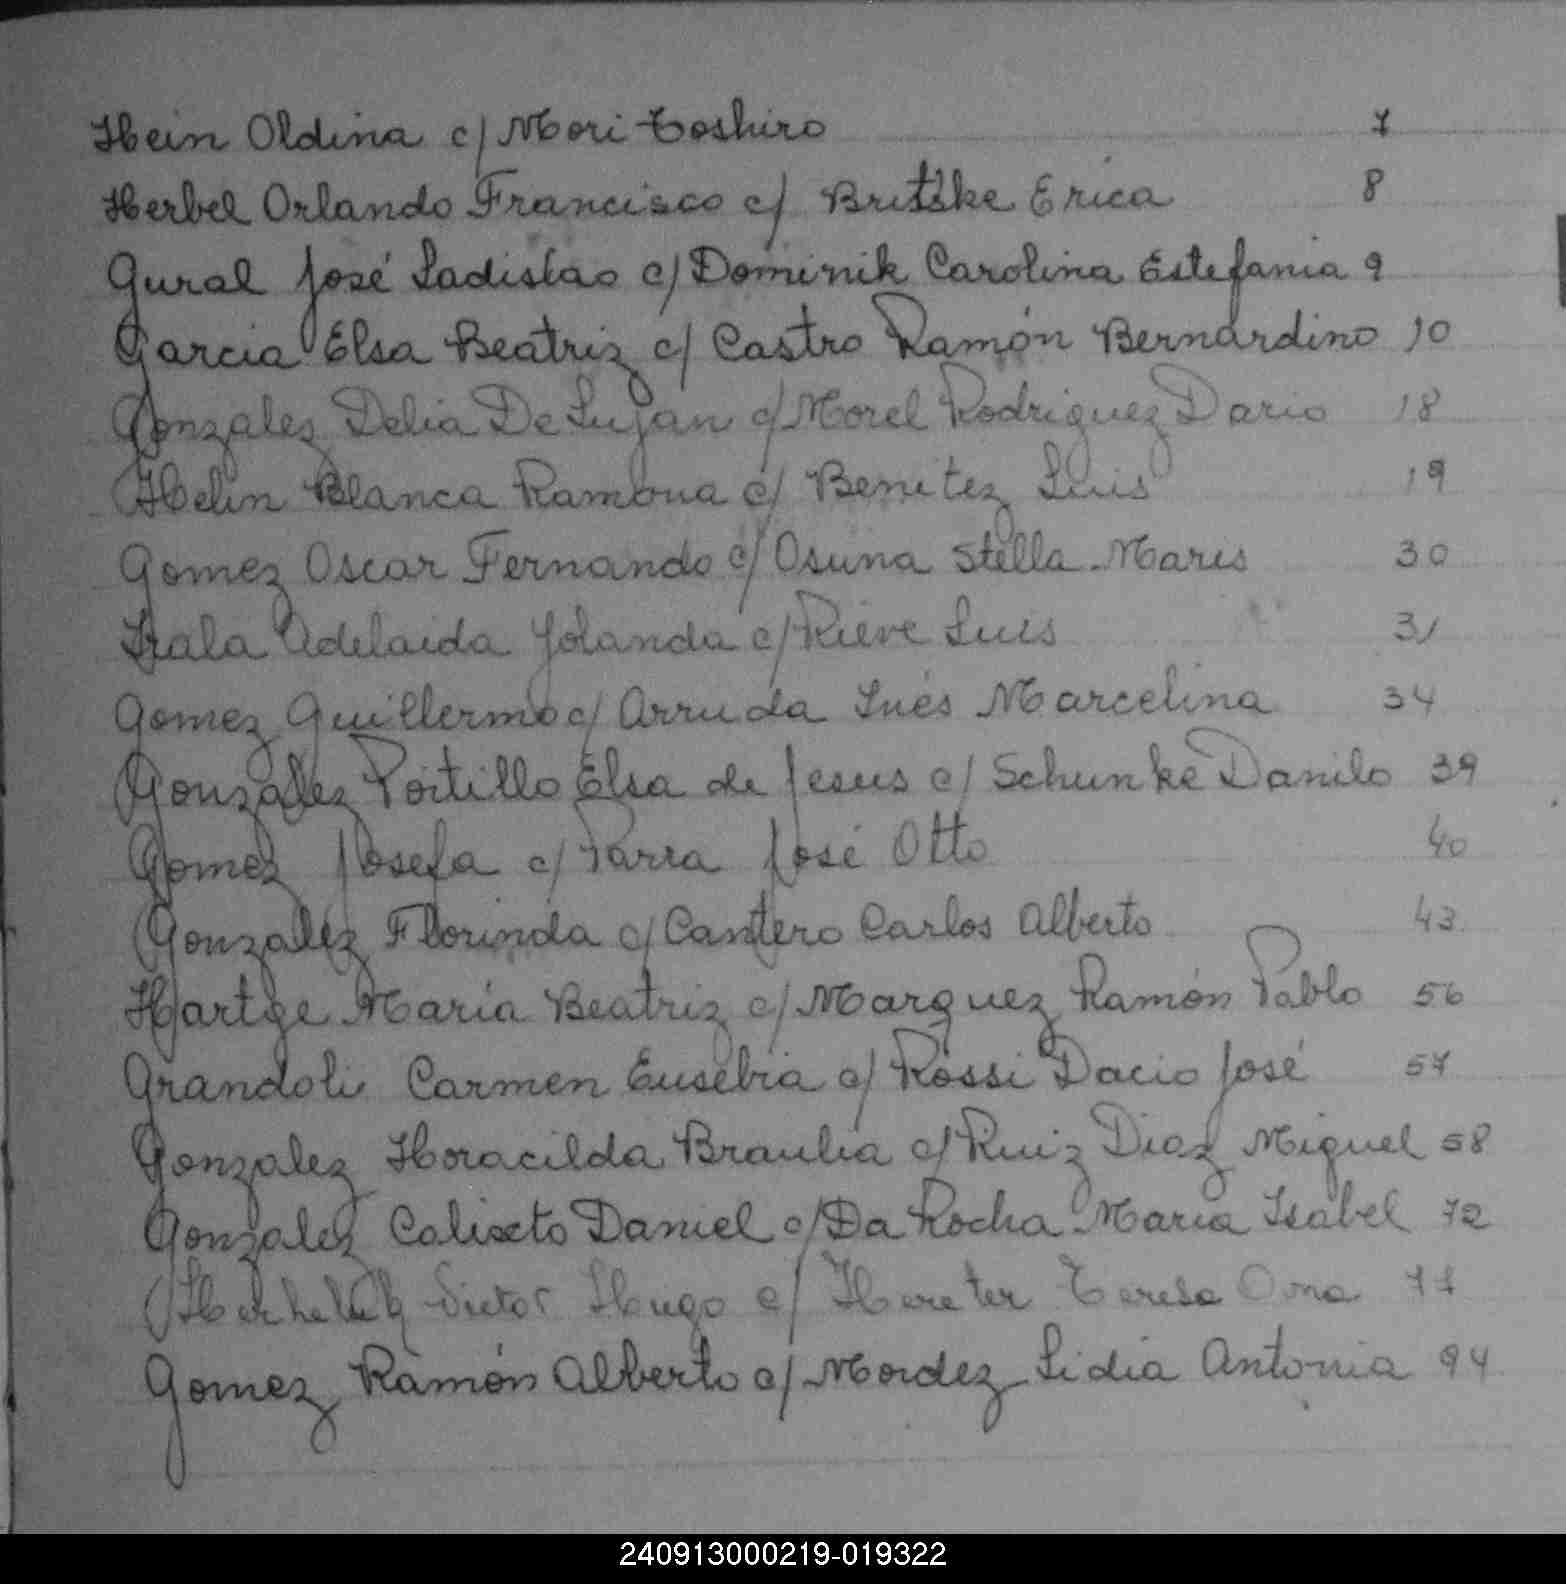 Hein Oldina c/ Mori Toshiro 7
Herbel Orlando Francisco c/ Britske Erica 8
Gural José Ladislao c/ Dominik Carolina Estefania 9
Garcia Elsa Beatriz c/ Castro Ramón Bernardino 10
Gonzalez Delia De Lujan c/ Morel Rodriguez Dario 18
Helin Blanca Ramona c/ Benitez Luis 19
Gomez Oscar Fernando c/ Osuna Stella Maris 30
Irala Adelaida Yolanda c/ Rieve Luis 31
Gomez Guillermo c/ Arruda Inés Marcelina 34
Gonzalez Portillo Elsa de Jesus c/ Schunke Danilo 39
Gomez Josefa c/ Parra José Otto 40
Gonzalez Florinda c/ Cantero Carlos Alberto 43
Hartge María Beatriz c/ Marquez Ramón Pablo 56
Grandoli Carmen Eusebia c/ Rossi Dacio José 57
Gonzalez Horacilda Braulia c/ Ruiz Diaz Miguel 58
Gonzalez Calixto Daniel c/ Da Rocha Maria Isabel 72
Victor Hugo c/ Hereter Teresa 77
Gomez Ramón Alberto c/ Mordez Lidia Antonia 94
240913000219-019322